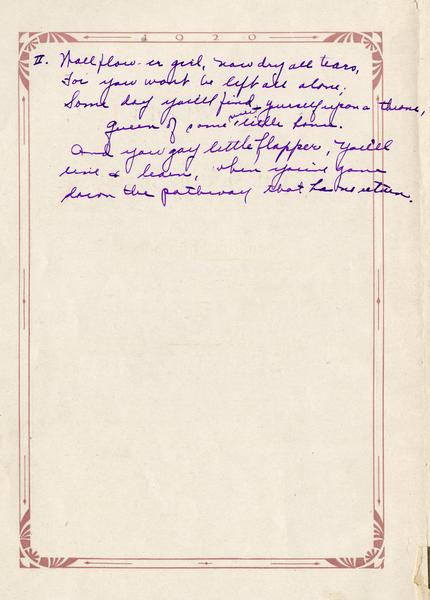 1920
II. Wallflow-er girl, now dry all tears,
For you wont be left all alone;
Some day you'll find yourself upon a throne,
Queen of some little home.
And you gay little flapper, You'll
live & learn, when you've gone
down the pathway that has no return.